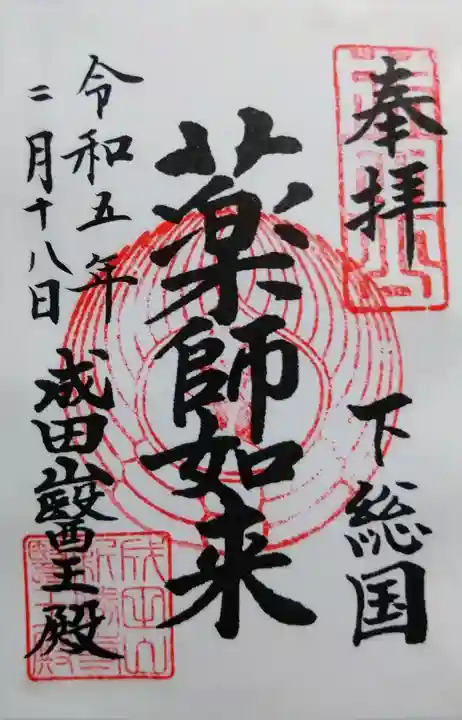 奉拝
下総国
薬師如来
令和五年
二月十八日
成田山醫王殿